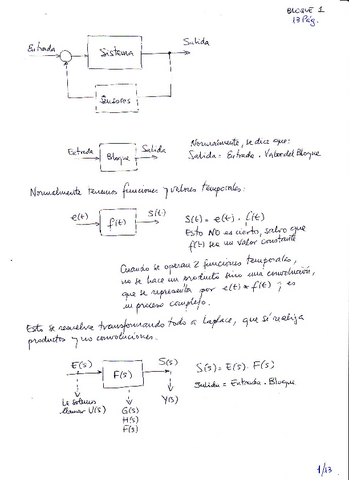 BLOQUE 1
13 Pág.
Entrada
Sistema
Salida
Sensores
Entrada
Bloque
Salida
Normalmente, se dice que:
Salida = Entrada · Valor del Bloque
Normalmente tenemos funciones y valores temporales:
e(t)
f(t)
s(t)
s(t) = e(t) · f(t)
Esto NO es cierto, salvo que
f(t) sea un valor constante
Cuando se operan 2 funciones temporales,
no se hace un producto sino una convolución,
que se representa por e(t) * f(t) y es
un proceso complejo.
Esto se resuelve transformando todo a Laplace, que sí realiza
productos y no convoluciones.
E(s)
F(s)
S(s)
S(s) = E(s) · F(s)
Salida = Entrada · Bloque
Le solemos
llamar U(s)
G(s)
H(s)
F(s)
Y(s)
1/13